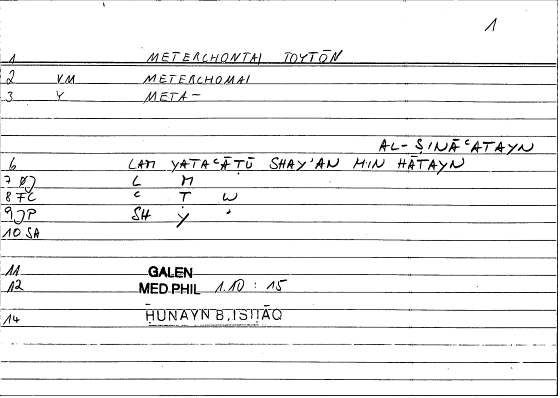 1
1 METERCHONTAI TOYTŌN
2 VM METERCHOMAI
3 Y META-
AL-ṢINĀʿATAYN
6 LAM YATAʿĀṬŪ SHAY'AN MIN HĀTAYN
7 ØJ L M
8 FC ʿ Ṭ W
9 JP SH Y '
10 SA
11 GALEN
12 MED PHIL 1.10 : 15
14 ḤUNAYN B. ISḤĀQ